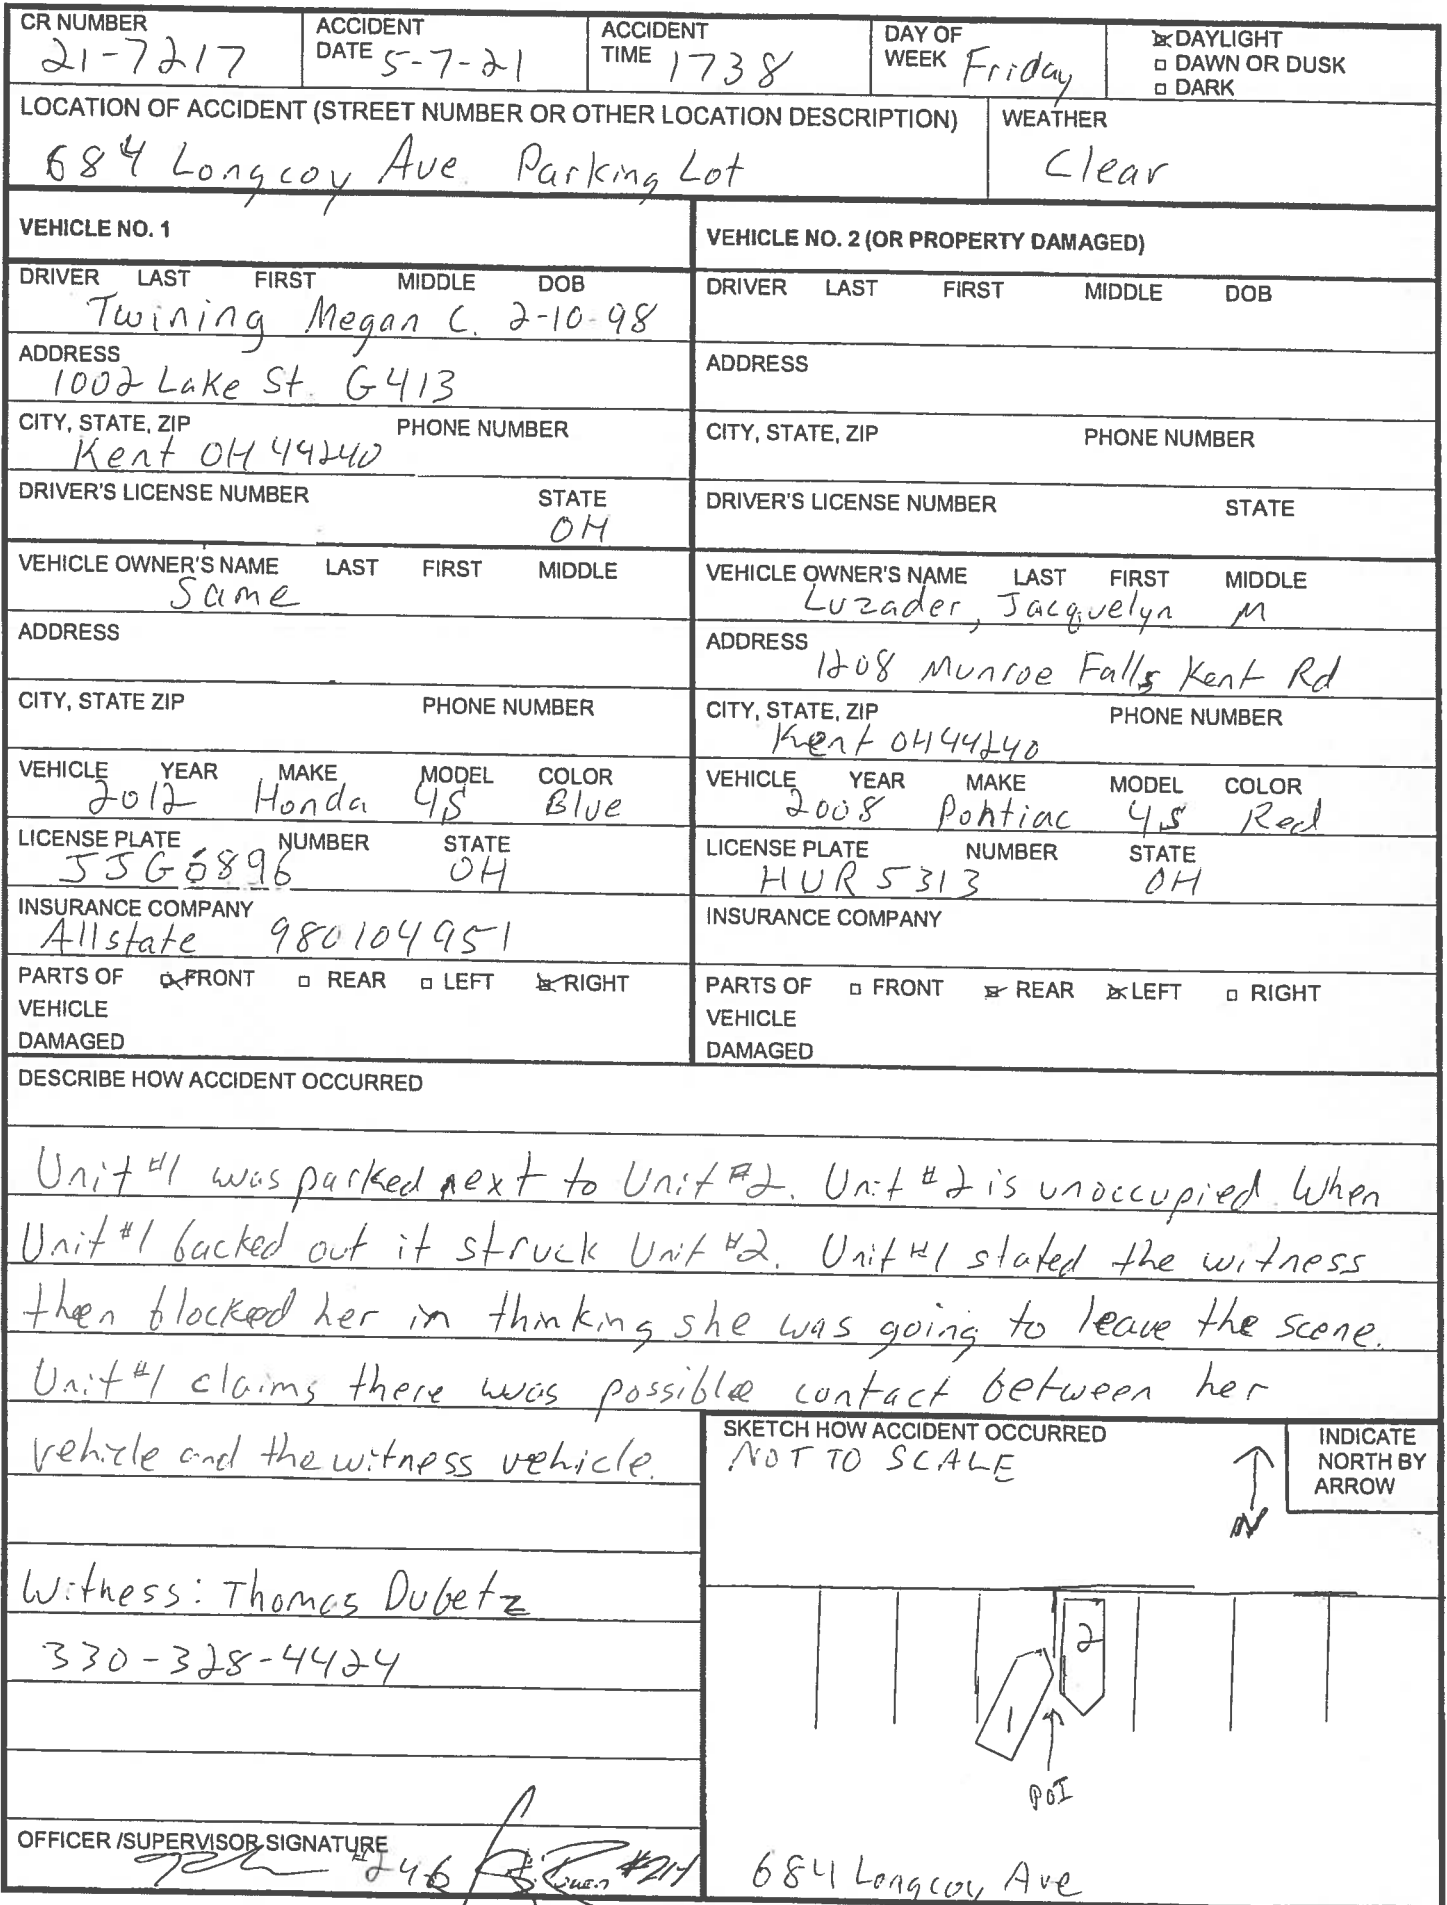 CR NUMBER
21-7217
ACCIDENT DATE 5-7-21
ACCIDENT TIME 1738
DAY OF WEEK Friday
DAYLIGHT
DAWN OR DUSK
DARK
LOCATION OF ACCIDENT (STREET NUMBER OR OTHER LOCATION DESCRIPTION)
684 Longcoy Ave. Parking Lot
WEATHER
Clear
VEHICLE NO. 1
DRIVER LAST FIRST MIDDLE DOB
Twining Megan C. 2-10-98
ADDRESS
1002 Lake St. G413
CITY, STATE, ZIP PHONE NUMBER
Kent OH 44240
DRIVER'S LICENSE NUMBER STATE
OH
VEHICLE OWNER'S NAME LAST FIRST MIDDLE
Same
ADDRESS
CITY, STATE ZIP PHONE NUMBER
VEHICLE YEAR MAKE MODEL COLOR
2012 Honda 4S Blue
LICENSE PLATE NUMBER STATE
JJG6896 OH
INSURANCE COMPANY
Allstate 980104951
PARTS OF VEHICLE DAMAGED FRONT REAR LEFT RIGHT
VEHICLE NO. 2 (OR PROPERTY DAMAGED)
DRIVER LAST FIRST MIDDLE DOB
ADDRESS
CITY, STATE, ZIP PHONE NUMBER
DRIVER'S LICENSE NUMBER STATE
VEHICLE OWNER'S NAME LAST FIRST MIDDLE
Luzader, Jacquelyn M
ADDRESS
1208 Munroe Falls Kent Rd
CITY, STATE, ZIP PHONE NUMBER
Kent OH 44240
VEHICLE YEAR MAKE MODEL COLOR
2008 Pontiac 4S Red
LICENSE PLATE NUMBER STATE
HUR 5313 OH
INSURANCE COMPANY
PARTS OF VEHICLE DAMAGED FRONT REAR LEFT RIGHT
DESCRIBE HOW ACCIDENT OCCURRED
Unit #1 was parked next to Unit #2. Unit #2 is unoccupied. When
Unit #1 backed out it struck Unit #2. Unit #1 stated the witness
then blocked her in thinking she was going to leave the scene.
Unit #1 claims there was possible contact between her
vehicle and the witness vehicle.
Witness: Thomas Dubetz
330-328-4424
OFFICER /SUPERVISOR SIGNATURE
#246 #214
SKETCH HOW ACCIDENT OCCURRED
NOT TO SCALE
INDICATE
NORTH BY
ARROW
N
2
1
POI
684 Longcoy Ave